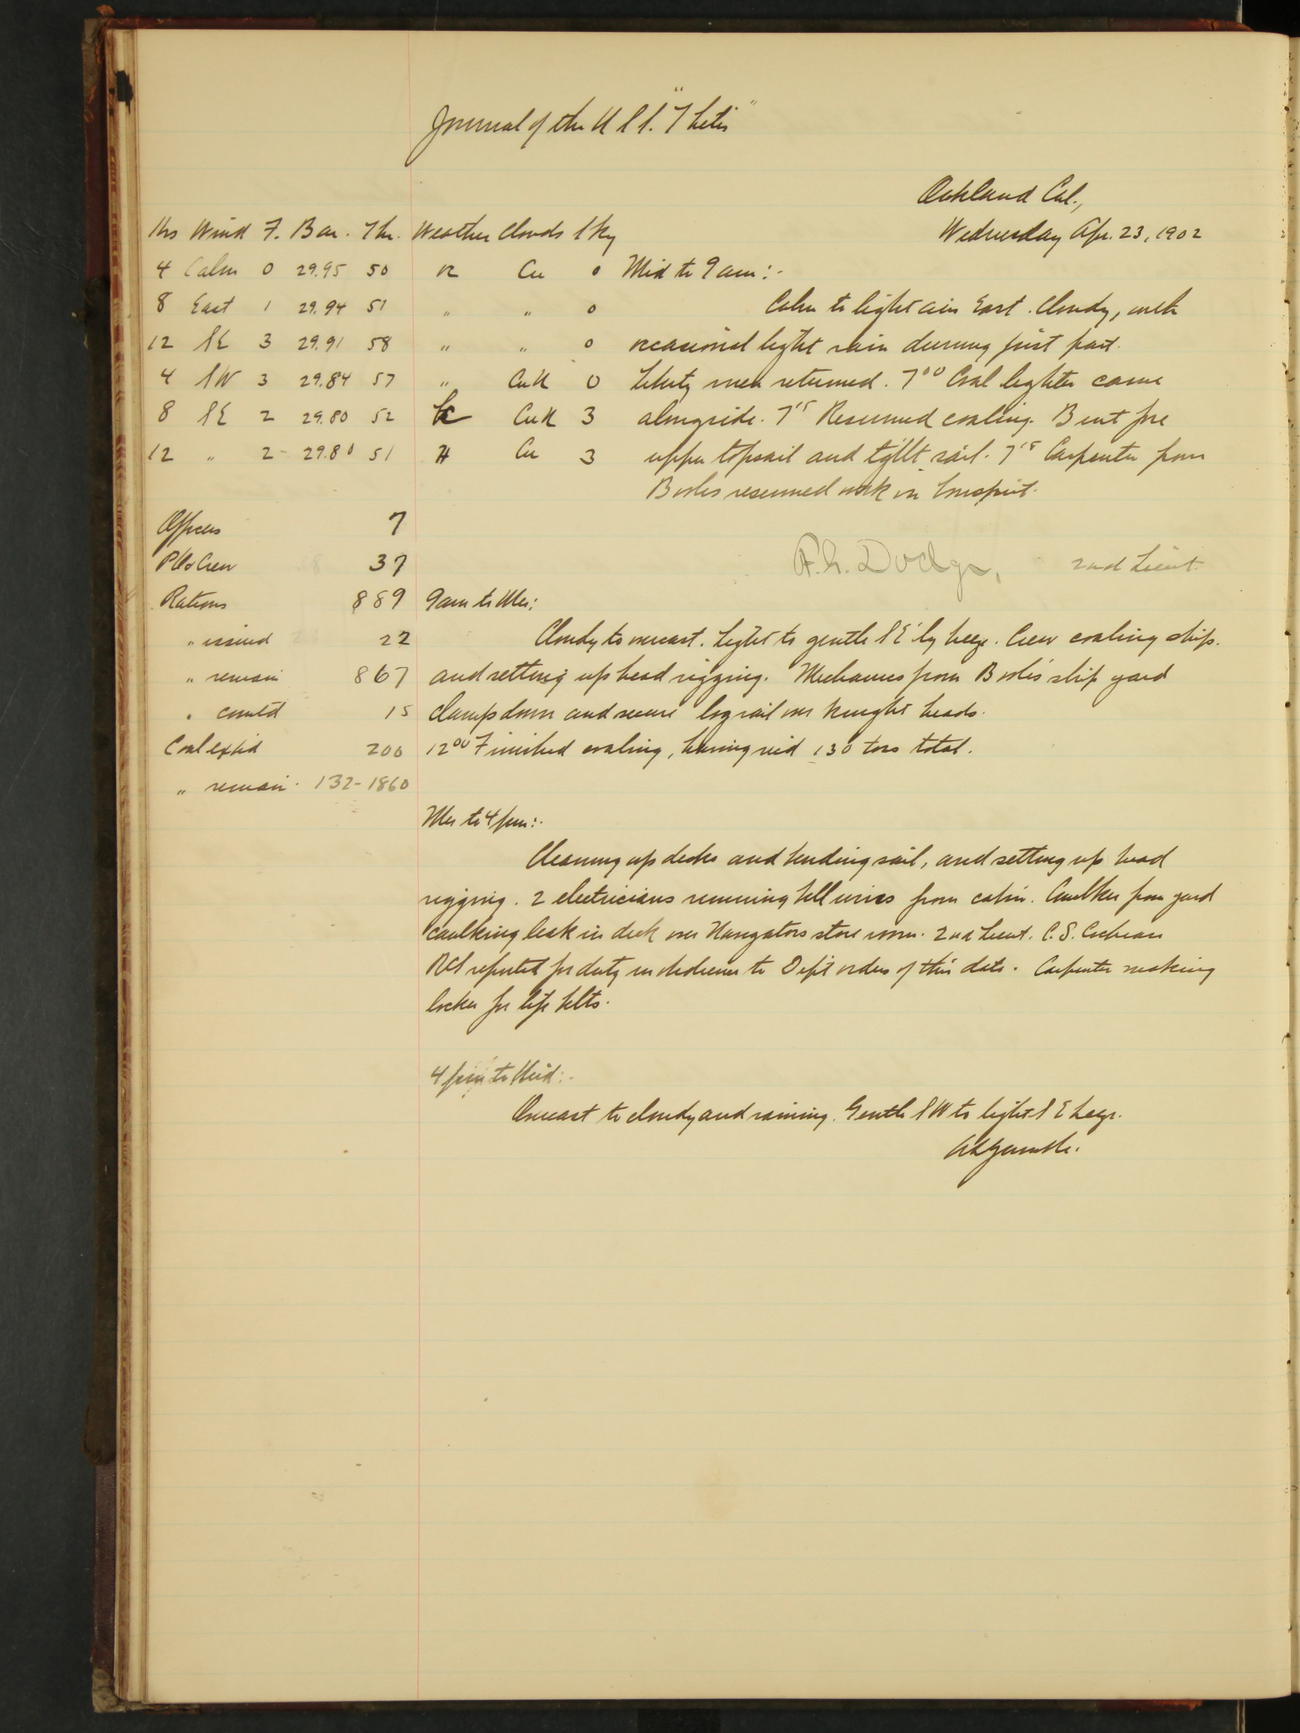 Journal of the U S S. "Thetis"
Oakland Cal.,
Wednesday Apr. 23, 1902
Hrs Wind F. Bar. Thr. Weather Clouds Sky
4 Calm 0 29.95 50 Cu 0 Mid to 9 am:-
8 East 1 29.94 51 " " 0 Calm to light airs East. Cloudy, with
12 SE 3 29.91 58 " " 0 occasional light rain during first part.
4 SW 3 29.84 57 " CuN 0 Liberty men returned. 7⁰⁰ Coal lighter came
8 SE 2 29.80 52 CuN 3 alongside. 7¹⁵ Resumed coaling. Bent fore
12 " 2 29.80 51 Cu 3 upper topsail and t'g'llt sail. 7¹⁵ Carpenter from
Booles resumed work in bowsprit.
Officers 7
P.O & Crew 37
F. G. Dodge, 2nd Lieut.
Rations 889 9am to Mer:
" issued 22 Cloudy to overcast. Light to gentle SE'ly breeze. Crew coaling ship.
" remain 867 and setting up head rigging. Mechanics from Booles' ship yard
" comt'd 15 clamp down and secure log rail over knight heads.
Coal exp'd 200 12⁰⁰ Finished coaling, having rec'd 130 tons total.
" remain. 132-1860
Mer to 4 pm:-
Cleaning up decks and bending sail, and setting up head
rigging. 2 electricians running bell wires from cabin. Caulker from yard
caulking leak in deck over Navigators store room. 2nd Lieut. C. S. Cochran
RCS reported for duty in obedience to Dep't orders of this date. Carpenter making
locker for life belts.
4 pm to Mid:-
Overcast to cloudy and raining. Gentle SW to light SE breeze.